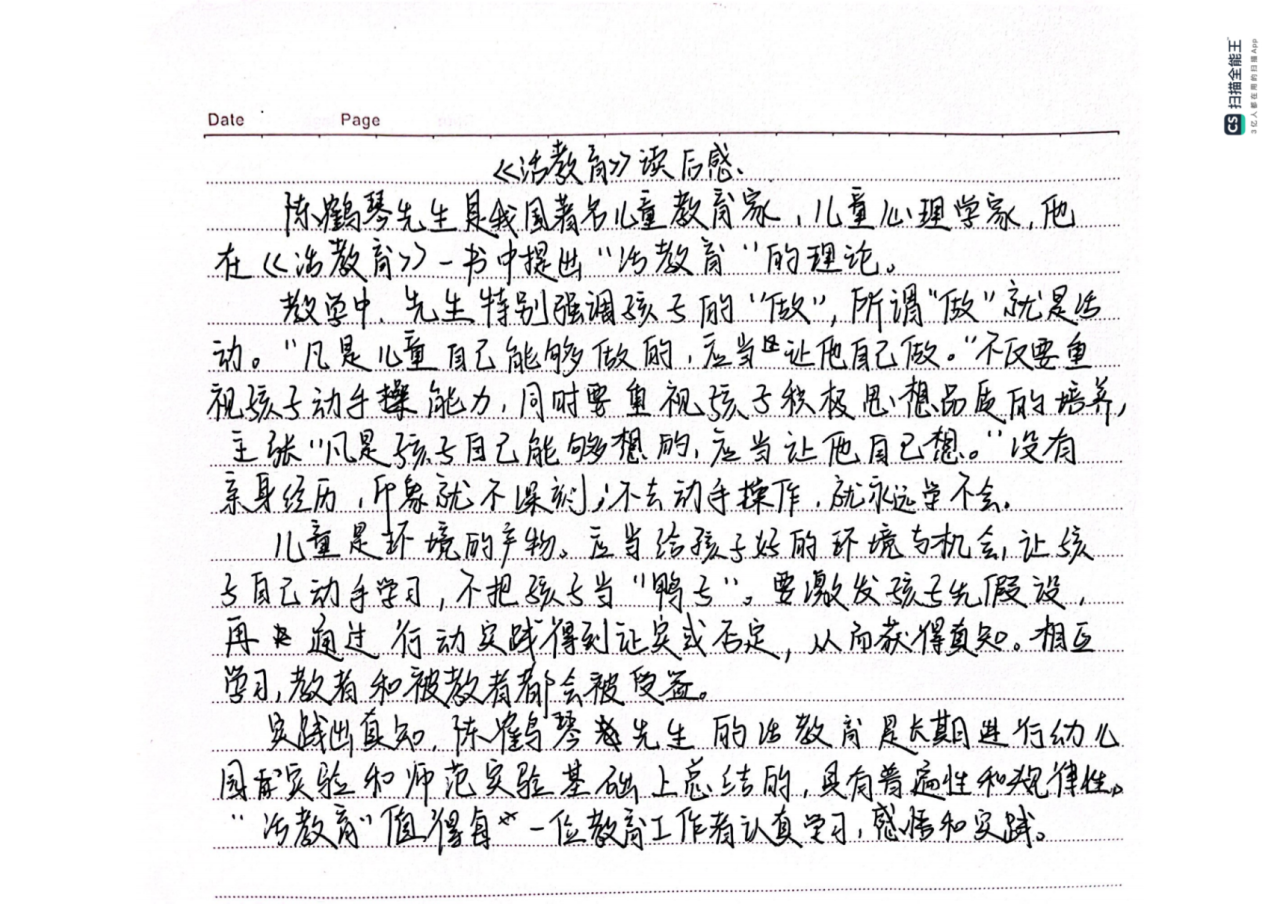 Date Page
《活教育》读后感、
陈鹤琴先生是我国著名儿童教育家，儿童心理学家，他
在《活教育》一书中提出“活教育”的理论。
教学中，先生特别强调孩子的“做”，所谓“做”就是活
动。“凡是儿童自己能够做的，应当让他自己做。”不仅要重
视孩子动手操能力，同时要重视孩子积极思想品质的培养，
主张“凡是孩子自己能够想的，应当让他自己想。”没有
亲身经历，印象就不深刻；不去动手操作，就永远学不会。
儿童是环境的产物。应当给孩子好的环境与机会，让孩
子自己动手学习，不把孩子当“鸭子”。要激发孩子先假设，
再通过行动实践得到证实或否定，从而获得真知。相互
学习，教者和被教者都会被受益。
实践出真知，陈鹤琴先生的活教育是长期进行幼儿
园实验和师范实验基础上总结的，具有普遍性和规律性。
“活教育”值得每一位教育工作者认真学习，感悟和实践。
CS 扫描全能王
3亿人都在用的扫描App